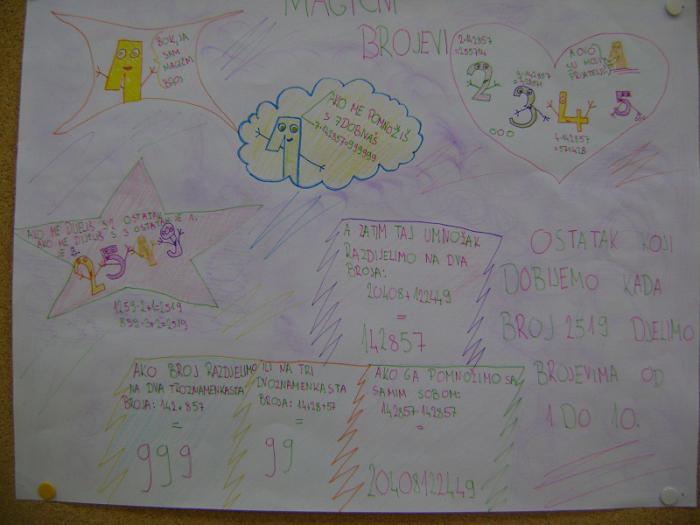 MAGIČNI
BROJEVI
BOK, JA
SAM
MAGIČNI
BROJ
AKO ME POMNOŽIŠ
S 7 DOBIVAŠ
7·142857=999999
2·142857
=285714
A OVO
SU MOJI
PRIJATELJI
2
3
4
5
4·142857
=571428
AKO ME DIJELIŠ S 2 OSTATAK JE 1.
AKO ME DIJELIŠ S 3 OSTATAK
JE 2.
2519
1259·2+1=2519
839·3+2=2519
A ZATIM TAJ UMNOŽAK
RAZDIJELIMO NA DVA
BROJA:
20408+122449
=
142857
OSTATAK KOJI
DOBIJEMO KADA
BROJ 2519 DJELIMO
BROJEVIMA OD
1 DO 10.
AKO BROJ RAZDIJELIMO
NA DVA TROZNAMENKASTA
BROJA: 142+857
=
999
ILI NA TRI
DVOZNAMENKASTA
BROJA: 14+28+57
=
99
AKO GA POMNOŽIMO SA
SAMIM SOBOM:
142857·142857
=
20408122449